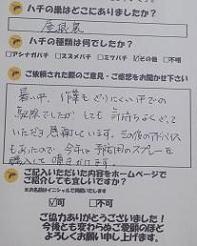 ハチの巣はどこにありましたか?
ハチの種類は何でしたか?
□アシナガバチ □スズメバチ □ミツバチ ☑その他 □不明
ご依頼された際のご意見・ご感想をお聞かせ下さい
暑い中、作業もとりにくい中での
駆除でしたが とても 気持ちよくして
いただき感謝しています。その後の
もあったので 今年は予防用のスプレーを
購入して
ご記入いただいた内容をホームページで
ご紹介しても宜しいですか?
※お名前はイニシャルで掲載いたします
☑可 □不可
ご協力ありがとうございました!
今後とも変わらぬご愛顧のほど
よろしくお願い申し上げます。